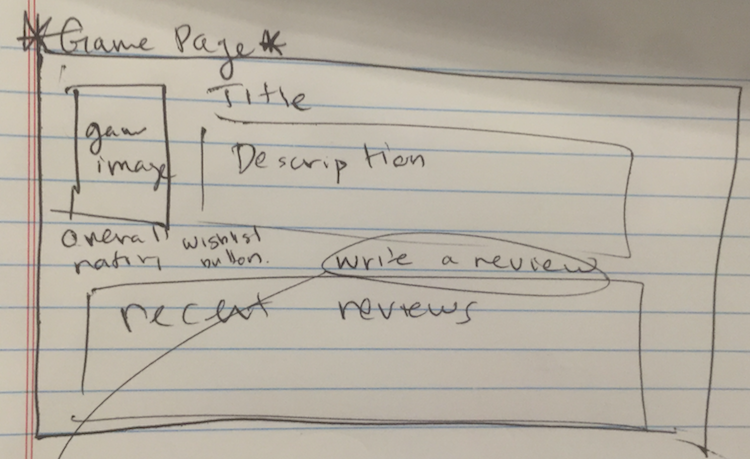 *Game Page*
Title
gam
image
Description
overall
wishlist
button.
write a review
recent reviews